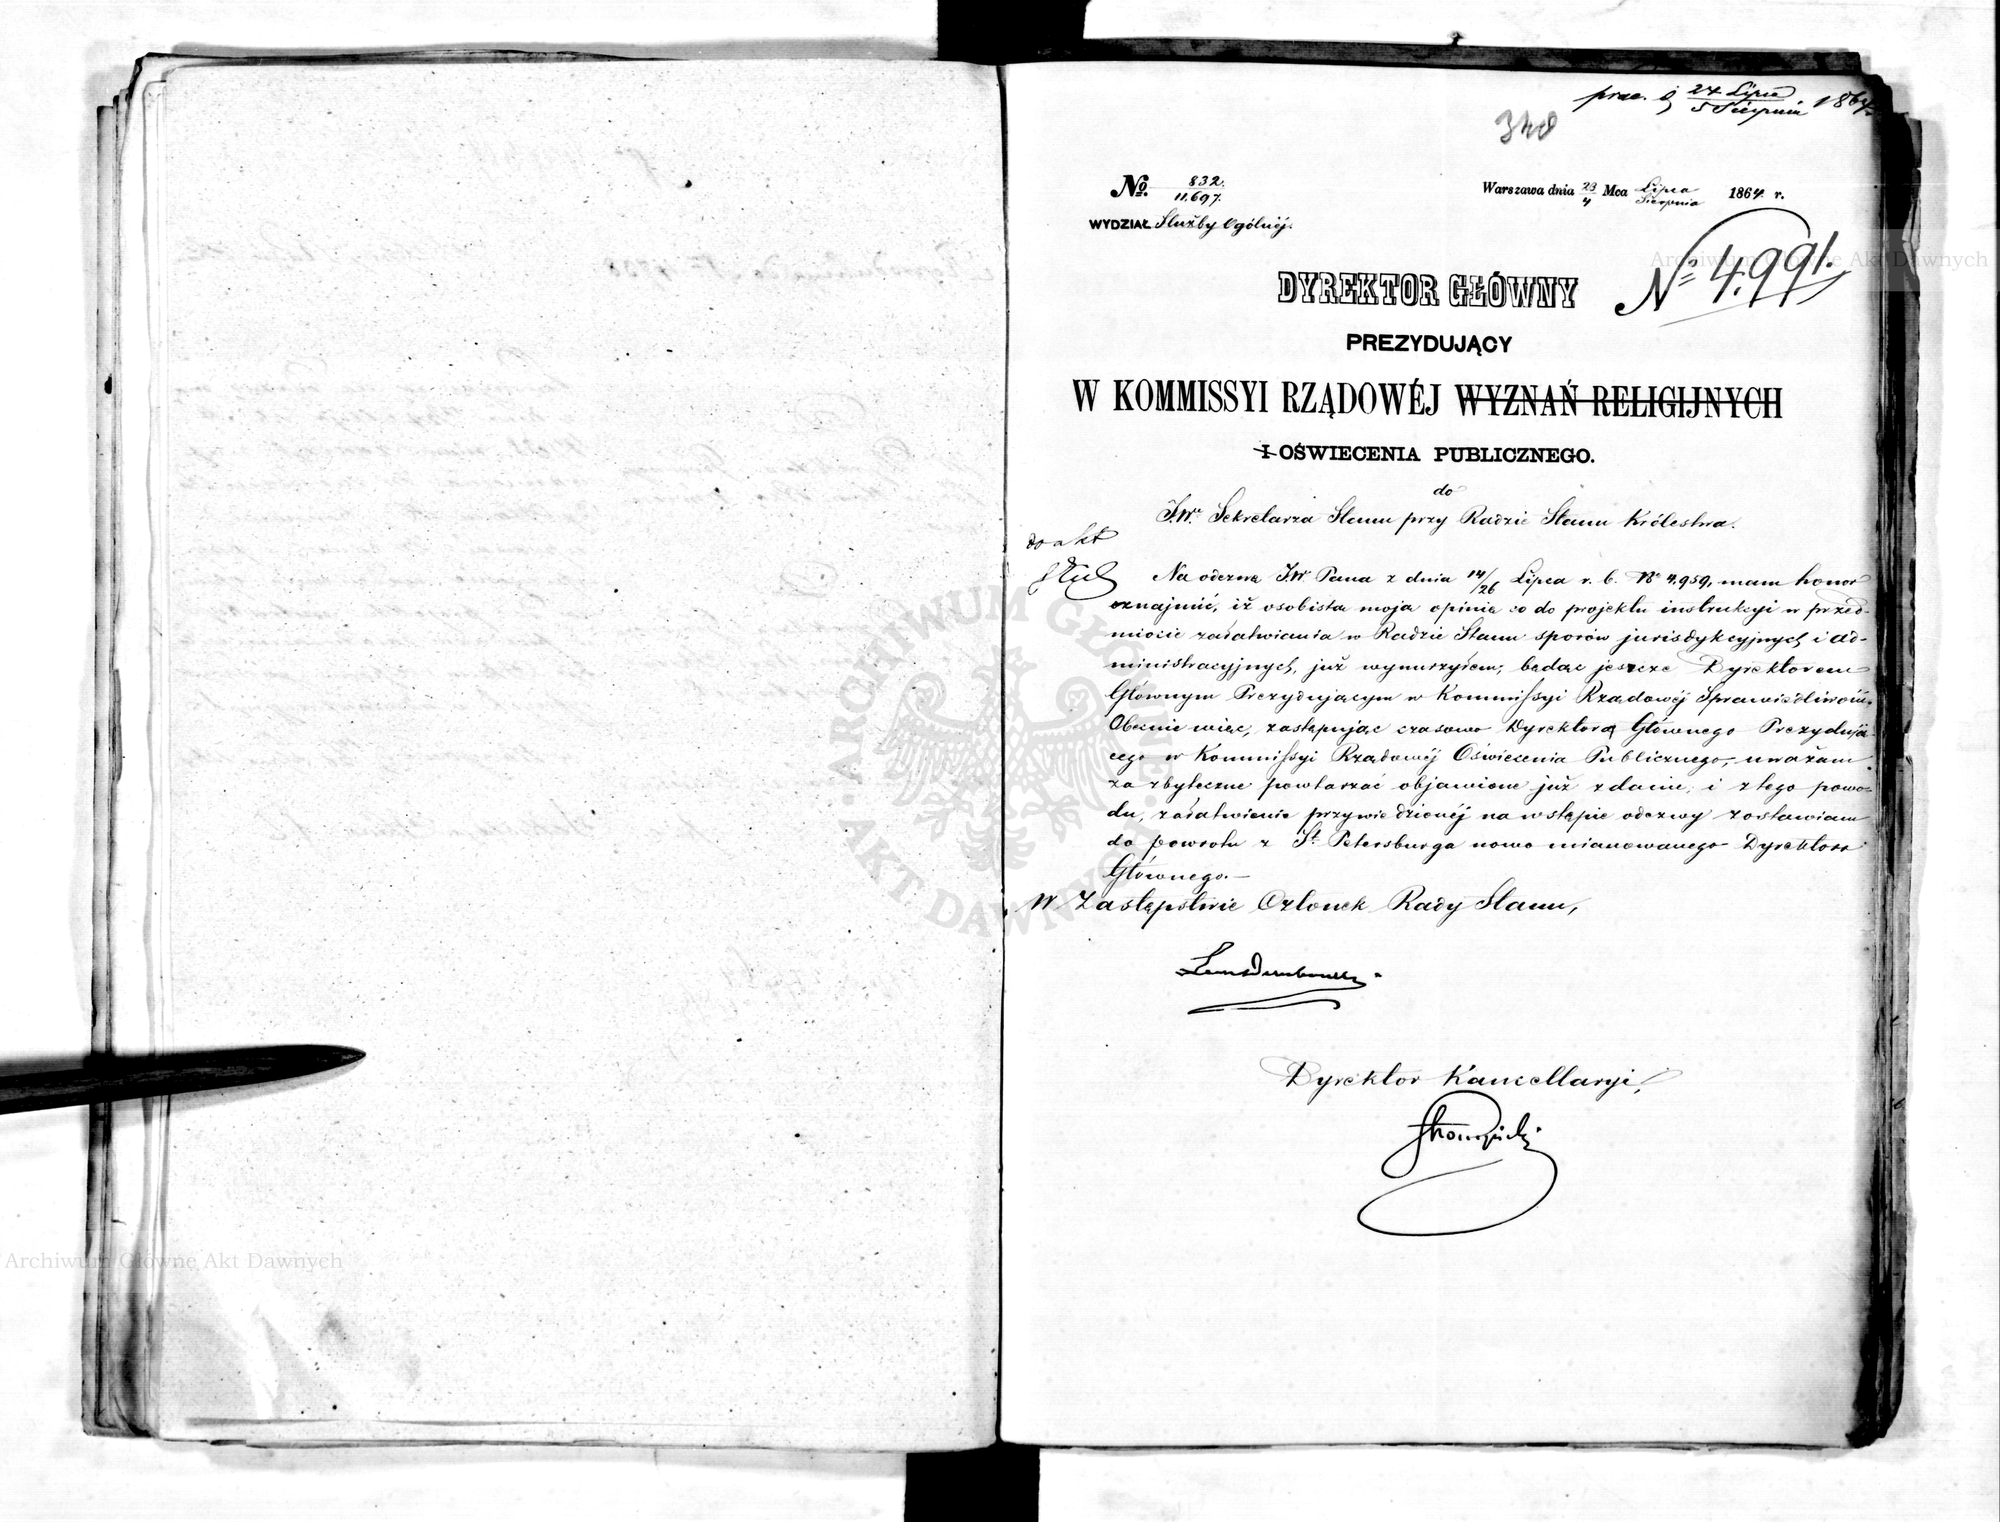 prae. d 24 Lipca / 5 Sierpnia 1864
340
No. 832. / 11.697.
Warszawa dnia 23/4 Mca Lipca / Sierpnia 1864 r.
WYDZIAŁ Służby Ogólnéj.
Nº 4.991.
DYREKTOR GŁÓWNY
PREZYDUJĄCY
W KOMMISSYI RZĄDOWÉJ WYZNAŃ RELIGIJNYCH
I OŚWIECENIA PUBLICZNEGO.
do
J.W. Sekretarza Stanu przy Radzie Stanu Królestwa.
do akt
Na odezwę J.W. Pana z dnia 14/26 Lipca r. b. Nº 4.959, mam honor
oznajmić, iż osobista moja opinia co do projektu instrukcyi w przed-
miocie załatwiania w Radzie Stanu sporów jurisdykcyjnych i ad-
ministracyjnych, już wynurzyłem, będąc jeszcze Dyrektorem
Głównym Prezydującym w Kommissyi Rządowéj Sprawiedliwości.
Obecnie więc, zastępując czasowo Dyrektora Głównego Prezydują-
cego w Kommissyi Rządowéj Oświecenia Publicznego, uważam
za zbyteczne powtarzać objawione już zdanie, i z tego powo-
du, załatwienie przywiedzionéj na wstępie odezwy zostawiam
do powrotu z St. Petersburga nowo mianowanego Dyrektora
Głównego.—
W Zastępstwie Członek Rady Stanu,
Dyrektor Kancellaryi,
Archiwum Główne Akt Dawnych
ARCHIWUM GŁÓWNE · AKT DAWNYCH ·
Archiwum Główne Akt Dawnych